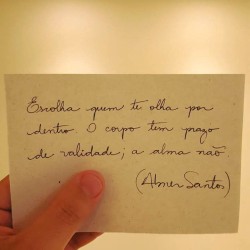 Escolha quem te olha por
dentro. O corpo tem prazo
de validade; a alma não
(Abner Santos)